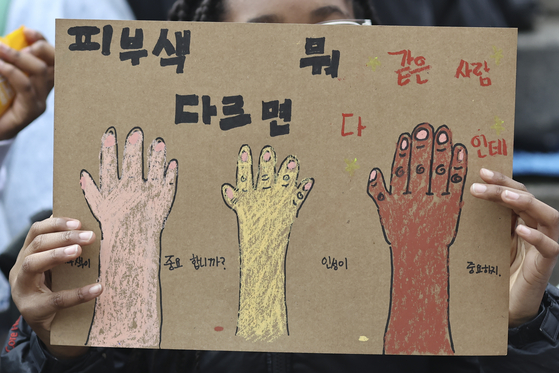 피부색
다르면
뭐
다 같은 사람
인데
중요 합니까? 인성이 중요하지.